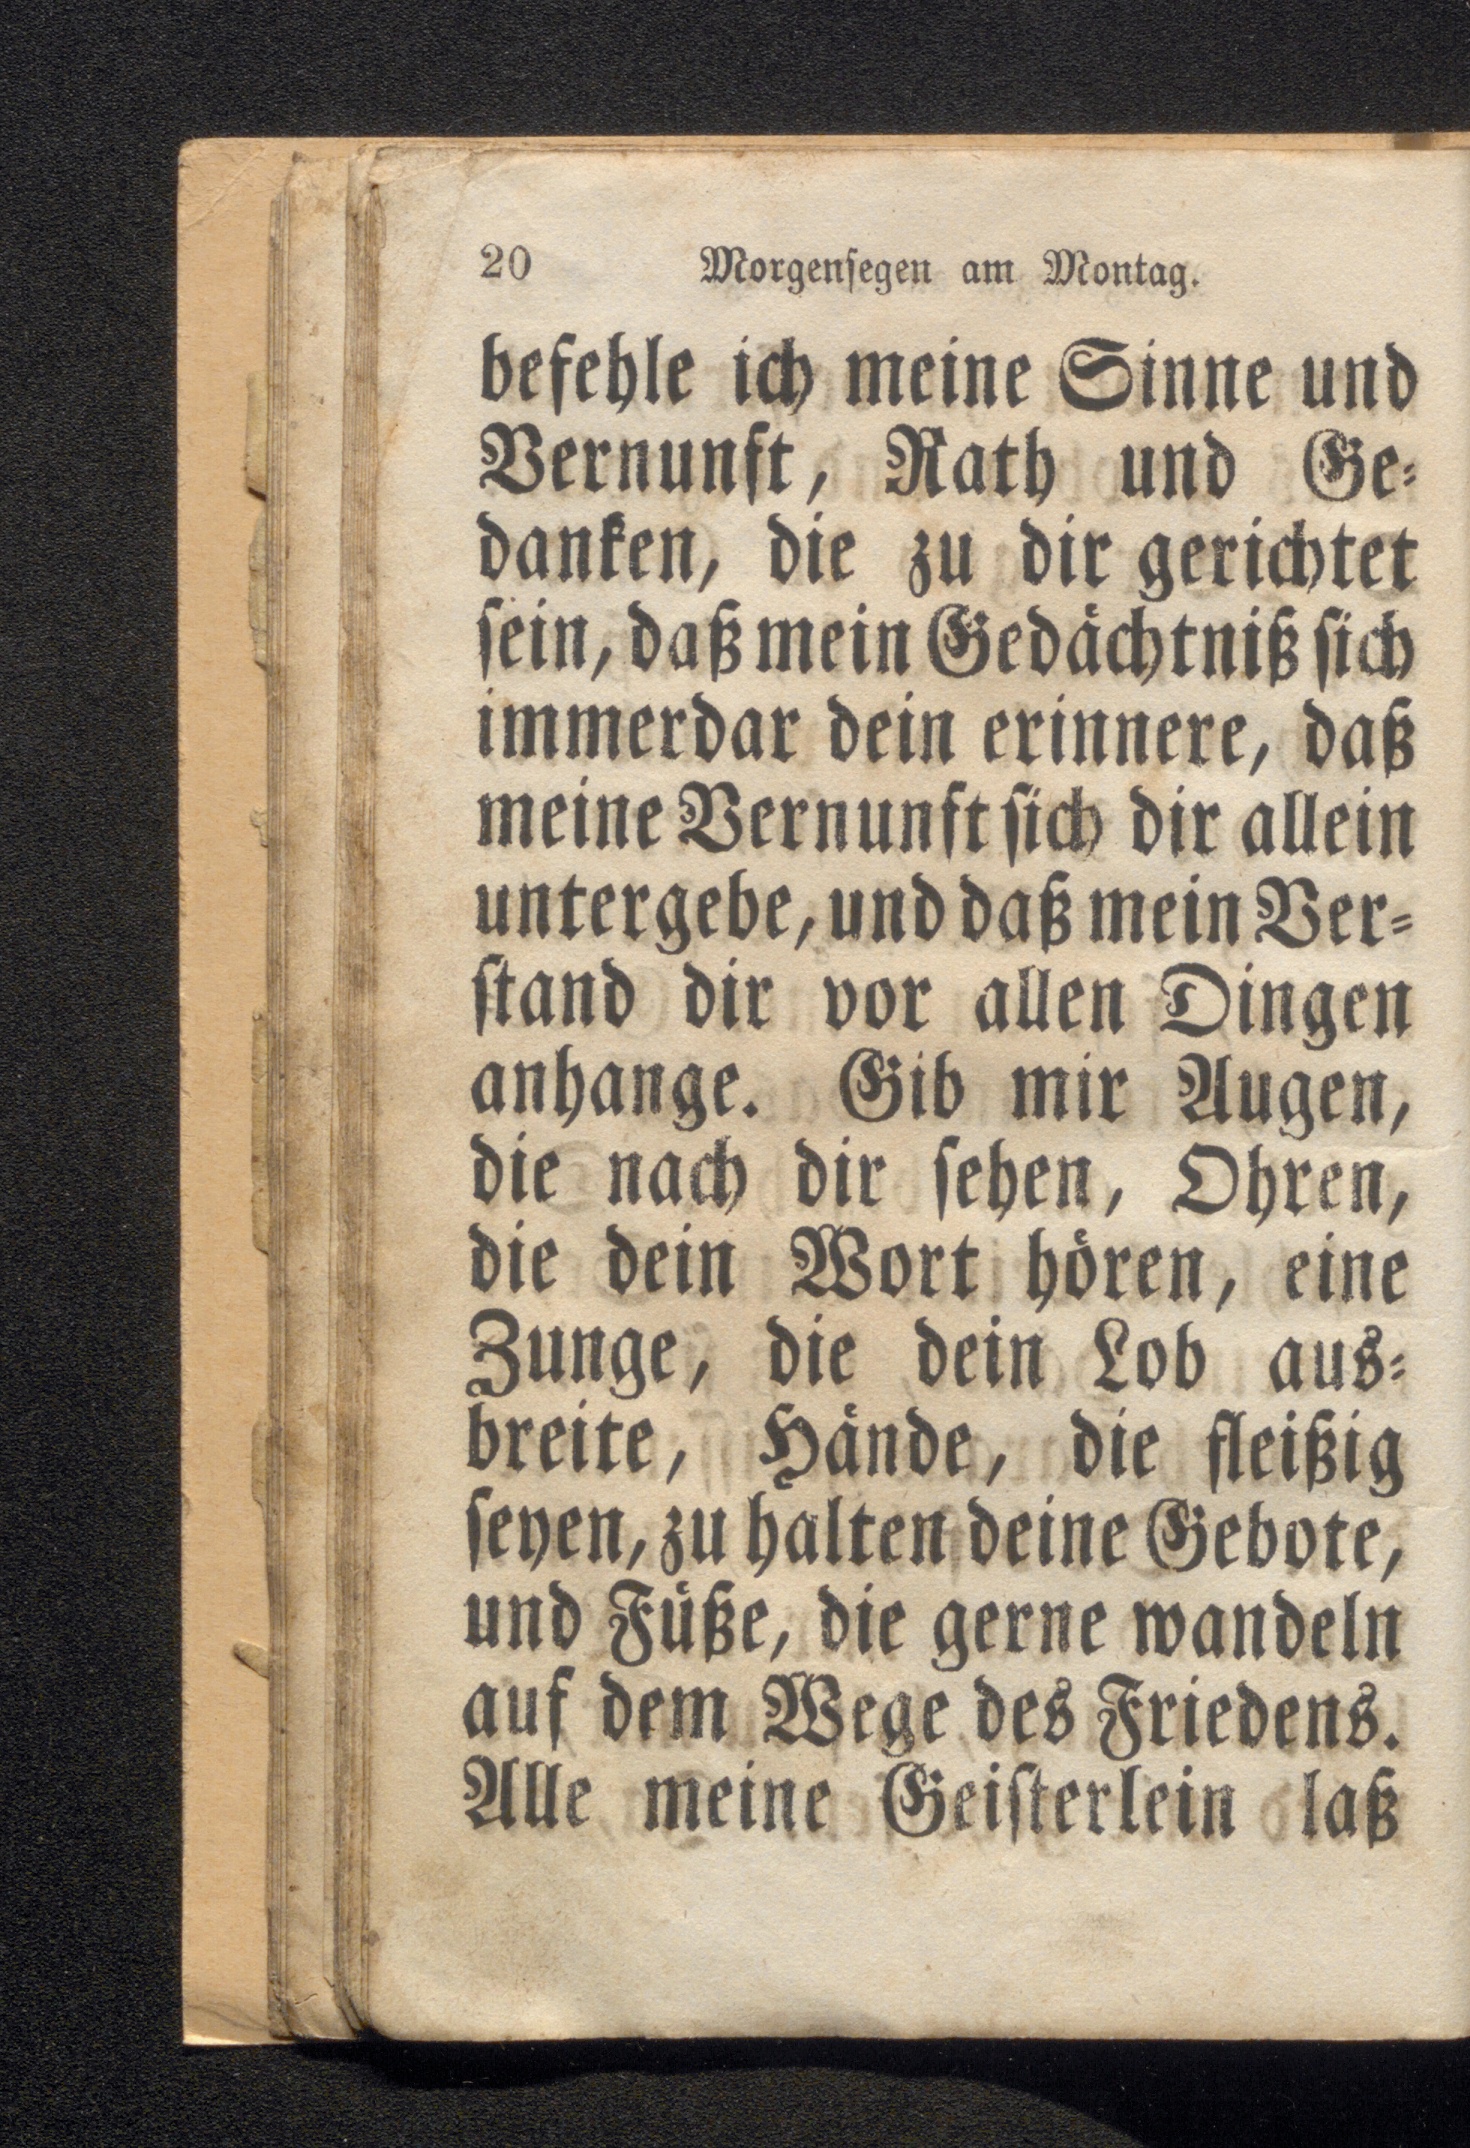 20 Morgensegen am Montag.
befehle ich meine Sinne und
Vernunft, Rath und Ge-
danken, die zu dir gerichtet
sein, daß mein Gedächtniß sich
immerdar dein erinnere, daß
meine Vernunft sich dir allein
untergebe, und daß mein Ver-
stand dir vor allen Dingen
anhange. Gib mir Augen,
die nach dir sehen, Ohren,
die dein Wort hören, eine
Zunge, die dein Lob aus-
breite, Hände, die fleißig
seyen, zu halten deine Gebote,
und Füße, die gerne wandeln
auf dem Wege des Friedens.
Alle meine Geisterlein laß